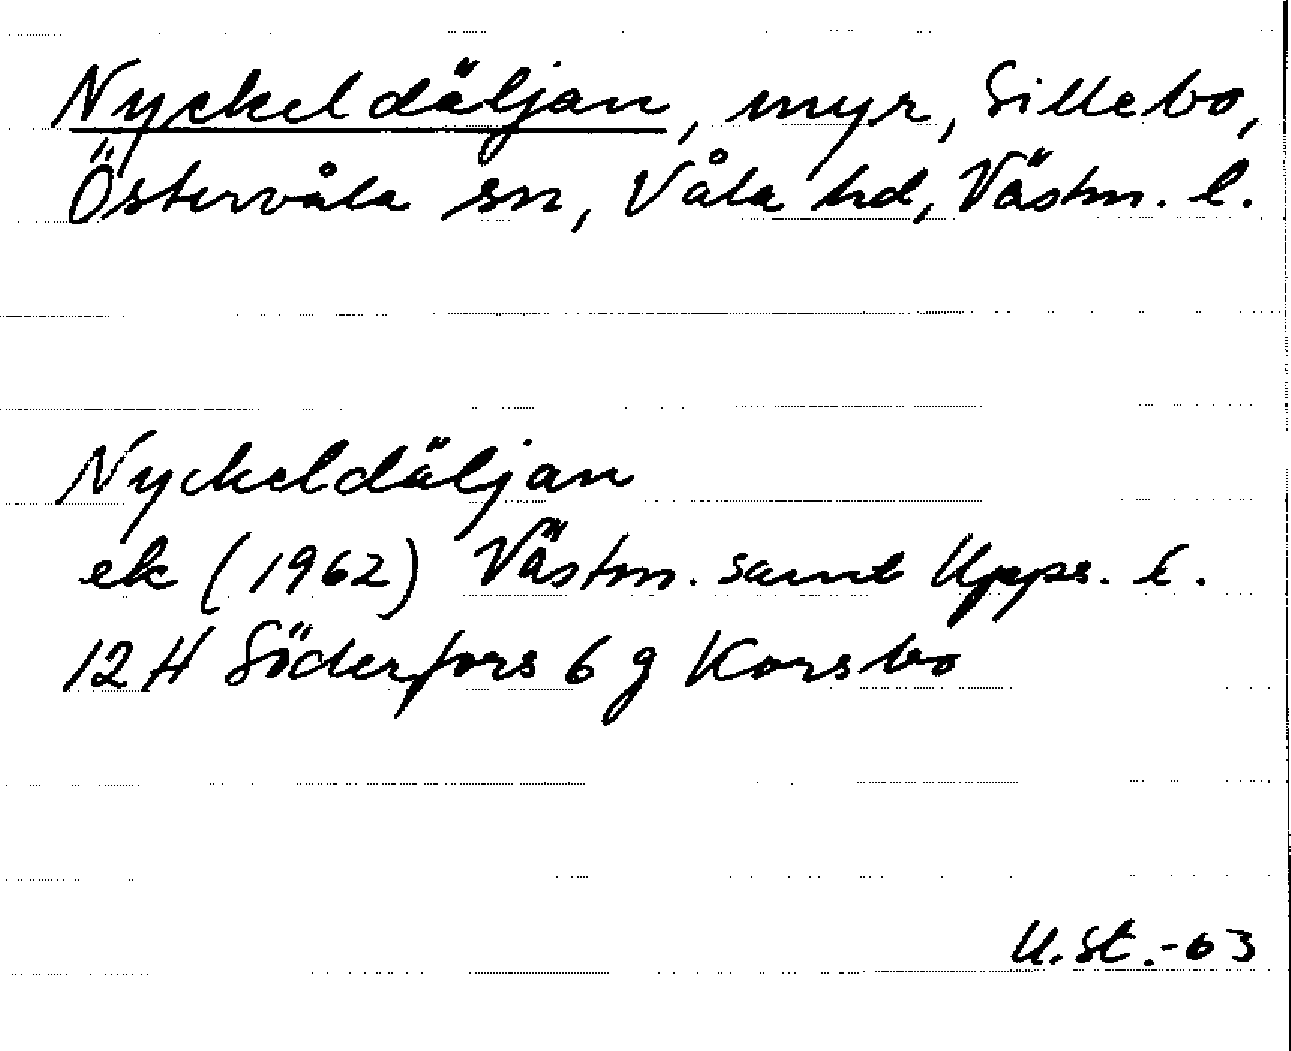 Nyckeldäljan, myr, Sillebo,
Östervåla sn, Våla hd, Västm. l.
Nyckeldäljan
ek (1962) Västm. samt Upps. l.
12 H Söderfors 6 g Korsbo
U. St. -63